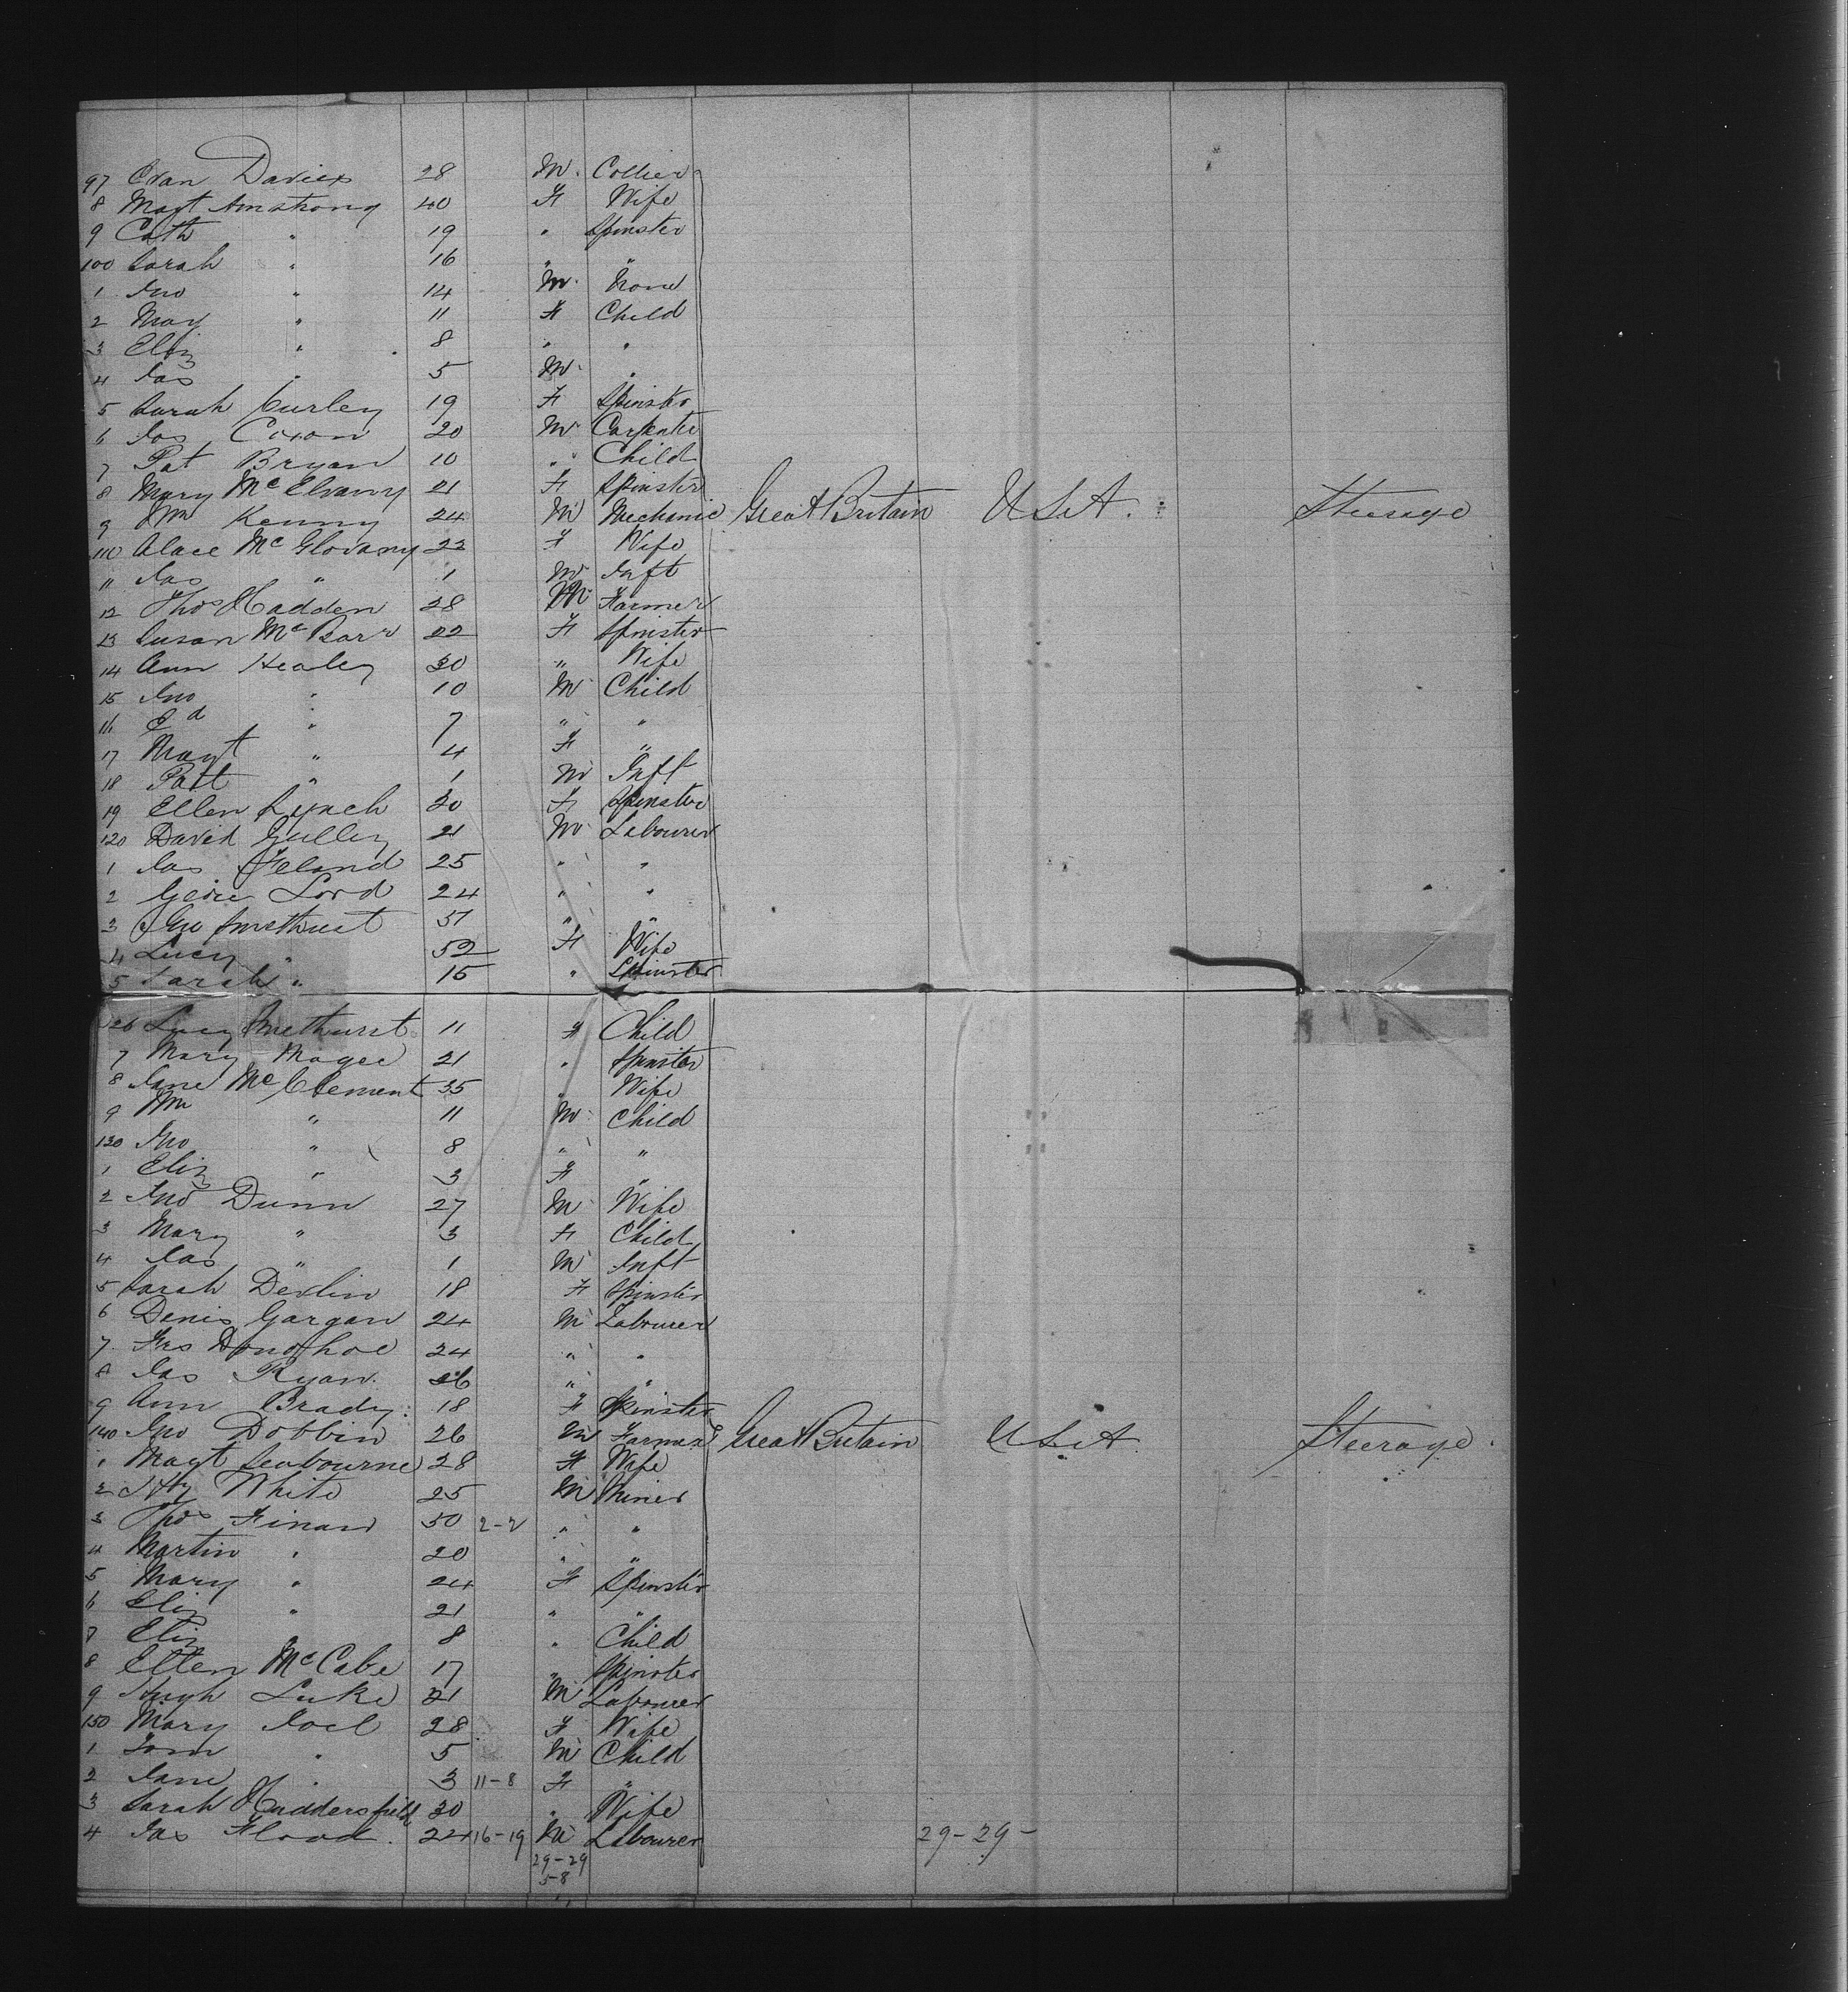 97 Evan Davies 28 M. Collier
8 Magt Armstrong 40 F Wife
9 Cath " 19 " Spinster
100 Sarah " 16 " "
1 Jno " 14 M. None
2 May " 11 F Child
3 Eliz " 8 " "
4 Jas " 5 M. "
5 Sarah Curley 19 F Spinster
6 Jas Coxon 20 M. Carpenter
7 Pat Bryan 10 " Child
8 Mary McElvany 21 F Spinster
9 Wm Kenny 24 M Mechanic Great Britain U.S.A. Steerage
110 Alace McGlovany 22 F Wife
11 Jas " 1 M Inft
12 Thos Hadden 28 M Farmer
13 Susan Mc 22 F Spinster
14 Ann Healey 30 " Wife
15 Jno " 10 M Child
16 Ed " 7 " "
17 Magt " 4 F "
18 Patt " 1 M Inft
19 Ellen Lynch 20 F Spinster
120 David Gulley 21 M. Labourer
1 Jas Feland 25 " "
2 Lord 24 " "
3 Jno Smethurst 51 " "
4 Lucy " 52 F Wife
5 Sarah " 15 " Spinster
126 Lucy Smethurst 11 F Child
7 Mary Magee 21 " Spinster
8 Jane McClement 35 " Wife
9 Wm " 11 M. Child
130 Jno " 8 " "
1 Eliz " 3 F "
2 Jno Dunn 27 M Wife
3 Mary " 3 F Child
4 Jas " 1 M Inft
5 Sarah Devlin 18 F Spinster
6 Denis Gargan 24 M Labourer
7. Frs Donohoe 24 " "
8 Jas Ryan. 26 " "
9 Ann Brady 18 F Spinster
140 Jno Dobbin 26 M Farmer Great Britain U.S.A Steerage.
1 Magt Seabourne 28 F Wife
2 Hy White 25 M Miner
3 Thos Finan 50 2-2 " "
4 Martin " 20 " "
5 Mary " 24 F Spinster
6 Eliz " 21 " "
7 Eliz " 8 " Child
8 Ellen McCabe 17 " Spinster
9 Hugh Luke 21 M Labourer
150 Mary Joel 28 F Wife
1 Tom " 5 M Child
2 Jane " 3 11-8 F "
3 Sarah Huddersfield 30 " Wife
4 Jas Flood. 24 16-19 M Labourer 29-29-
29-29
58